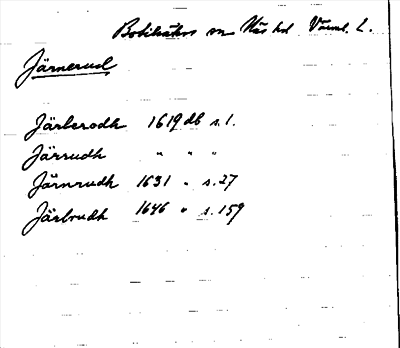 Botilsäter sn Näs hd Värml. L.
Järnerud
Järberodh 1619 db s. 1.
Järrudh " " "
Järnrudh 1631 " s. 27
Järbrudh 1646 " s. 159